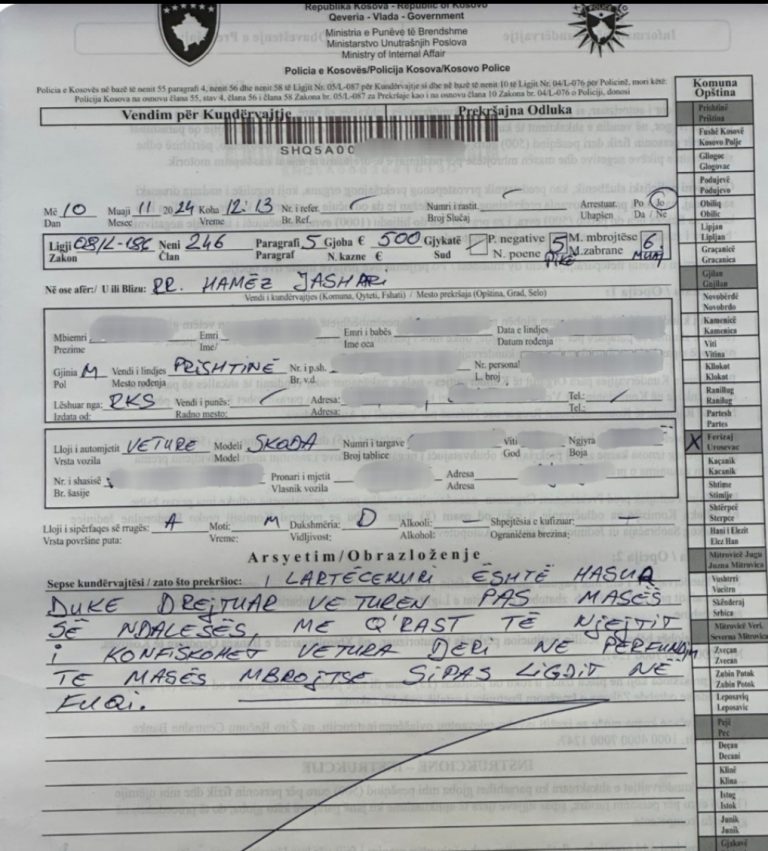 Republika Kosova - Republic of Kosovo
Qeveria - Vlada - Government
Ministria e Punëve të Brendshme
Ministarstvo Unutrašnjih Poslova
Ministry of Internal Affair
Policia e Kosovës/Policija Kosova/Kosovo Police
Policia e Kosovës në bazë të nenit 55 paragrafi 4, nenit 56 dhe nenit 58 të Ligjit Nr. 05/L-087 për Kundërvajtje si dhe në bazë të nenit 10 të Ligjit Nr. 04/L-076 për Policinë, mori këtë:
Policija Kosova na osnovu člana 55, stav 4, člana 56 i člana 58 Zakona br. 05/L-087 za Prekršaje kao i na osnovu člana 10 Zakona br. 04/L-076 o Policiji, donosi
Vendim për Kundërvajtje Prekršajna Odluka
SHQ5A00
Më 10 Muaji 11 2024 Koha 12:13 Nr. i refer. Numri i rastit. Arrestuar. Po Jo
Dan Mesec Vreme Br. Ref. Broj Slučaj Uhapšen Da / Ne
Ligji 08/L-186 Neni 246 Paragrafi 5 Gjoba € 500 Gjykatë P. negative 5 M. mbrojtëse 6.
Zakon Član Paragraf N. kazne € Sud N. poene PIKË M.zabrane MUAJ
Në ose afër:/ U ili Blizu: RR. HAMËZ JASHARI
Vendi i kundërvajtjes (Komuna, Qyteti, Fshati) / Mesto prekršaja (Opština, Grad, Selo)
Mbiemri Emri Emri i babës Data e lindjes
Prezime Ime/ Ime oca Datum rođenja
Gjinia M Vendi i lindjes PRISHTINË Nr. i p.sh. Nr. personal
Pol Mesto rođenja Br. v.d. L. broj
Lëshuar nga: RKS Vendi i punës: Adresa: Tel.:
Izdata od: Radno mesto: Adresa: Tel.:
Lloji i automjetit VETURË Modeli SKODA Numri i targave Viti Ngjyra
Vrsta vozila Model Broj tablice God Boja
Nr. i shasisë Pronari i mjetit Adresa
Br. šasije Vlasnik vozila Adresa
Lloji i sipërfaqes së rrugës: A Moti: M Dukshmëria: D Alkooli: — Shpejtësia e kufizuar: —
Vrsta površine puta: Vreme: Vidljivost: Alkohol: Ograničena brezina:
Arsyetim/Obrazloženje
Sepse kundërvajtësi / zato što prekršioc: I LARTËCEKURI ËSHTË HASUR
DUKE DREJTUAR VETUREN PAS MASËS
SË NDALESËS, ME Q'RAST TË NJEJTIT
I KONFISKOHET VETURA DERI NË PERFUNDIM
TE MASËS MBROJTSE SIPAS LIGJIT NË
FUQI.
Komuna
Opština
Prishtinë
Priština
Fushë Kosovë
Kosovo Polje
Gllogoc
Glogovac
Podujevë
Podujevo
Obiliq
Obilic
Lipjan
Lipljan
Graçanicë
Gracanica
Gjilan
Gnjilan
Novobërdë
Novobrdo
Kamenicë
Kamenica
Viti
Vitina
Kllokot
Klokot
Ranillug
Ranilug
Partesh
Partes
X Ferizaj
Urosevac
Kaçanik
Kacanik
Shtime
Stimlje
Shtërpcë
Sterpce
Hani i Elezit
Elez Han
Mitrovicë Jugu
Juzna Mitrovica
Vushtrri
Vucitrn
Skënderaj
Srbica
Mitrovicë Veri.
Severna Mitrovica
Zveçan
Zvecan
Zubin Potok
Zubin Potok
Leposaviq
Leposavic
Pejë
Pec
Deçan
Decani
Klinë
Klina
Istog
Istok
Junik
Junik
Gjakovë